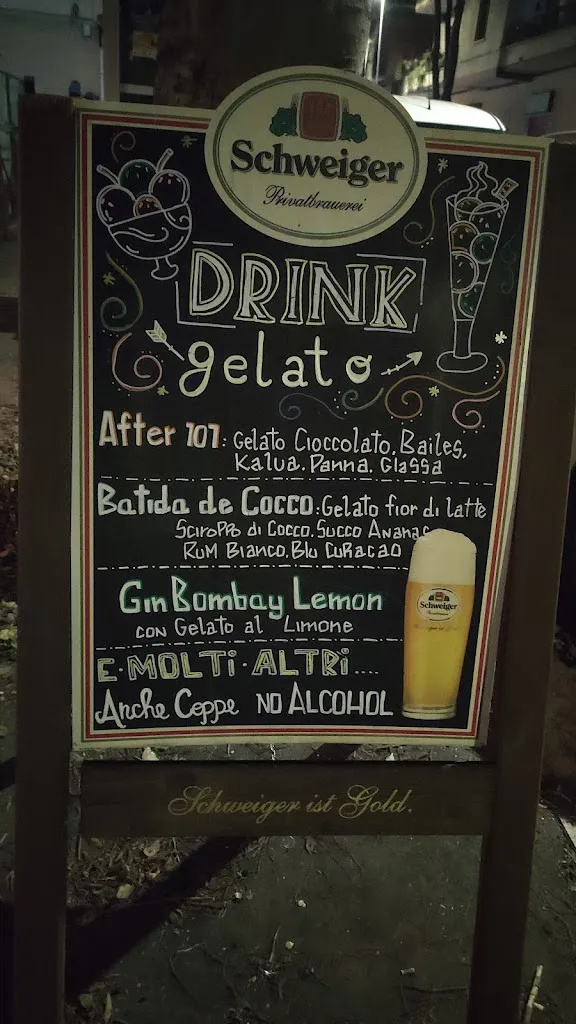 Schweiger
Privatbrauerei
DRINK
gelato
After 101: Gelato Cioccolato, Bailes,
Kalua. Panna. Glassa
Batida de Cocco: Gelato fior di latte
Sciroppo di Cocco. Succo Ananas
Rum Bianco. Blu Curacao
Gin Bombay Lemon
con Gelato al Limone
E·MOLTI·ALTRI....
Anche Coppe NO ALCOHOL
Schweiger
Schweiger ist Gold.